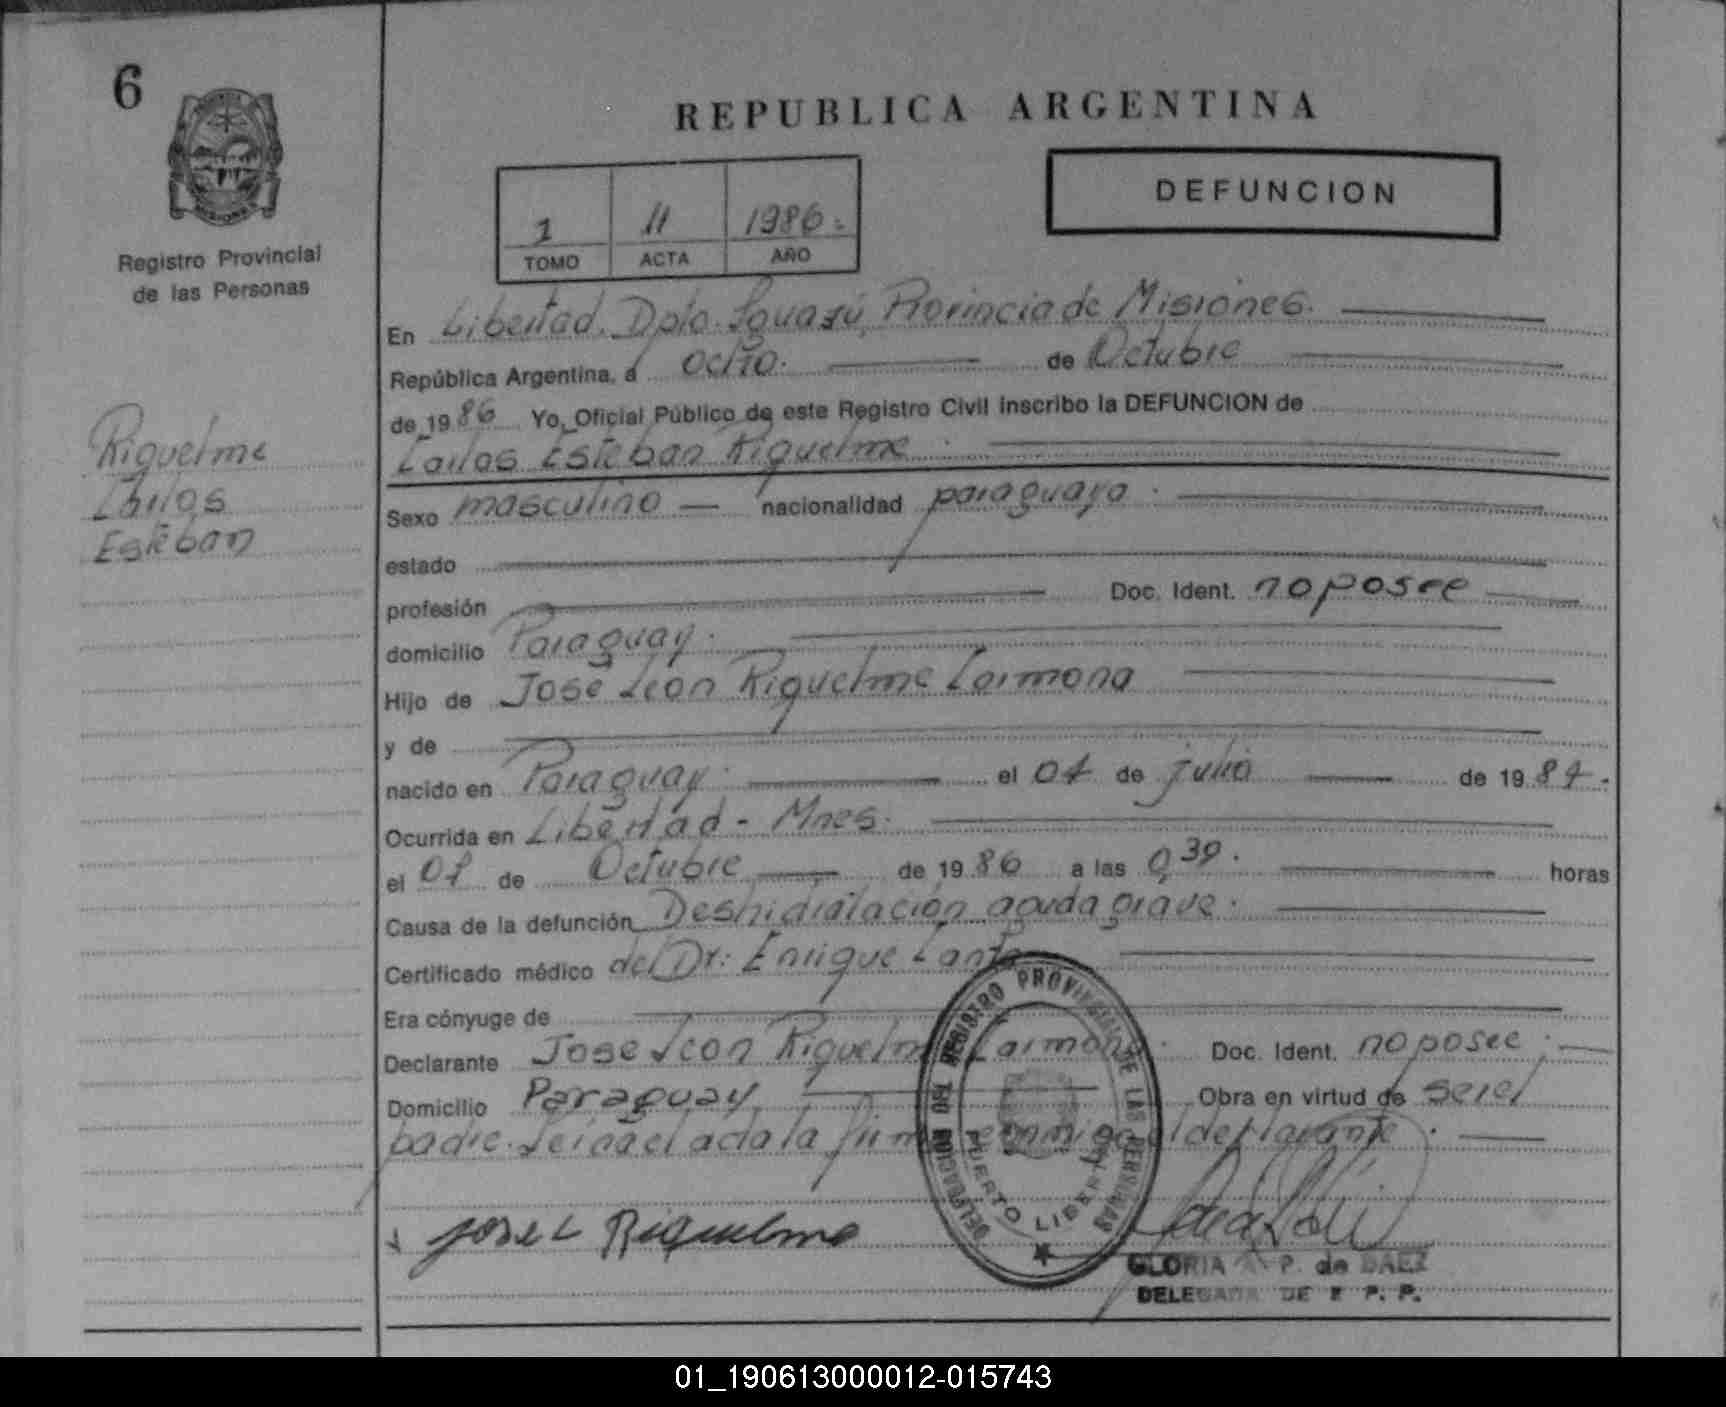 6
REPUBLICA ARGENTINA
DEFUNCION
1 11 1986.
TOMO ACTA AÑO
Registro Provincial
de las Personas
Riquelme
Carlos
Esteban
En Libertad. Dpto. Iguazú, Provincia de Misiones.
República Argentina, a ocho. de Octubre
de 1986 Yo, Oficial Público de este Registro Civil inscribo la DEFUNCION de
Carlos Esteban Riquelme.
Sexo masculino — nacionalidad paraguaya.
estado
profesión Doc. Ident. no posee
domicilio Paraguay.
Hijo de José León Riquelme Carmona
y de
nacido en Paraguay. el 04 de julio de 1984.
Ocurrida en Libertad - Mnes.
el 07 de Octubre de 1986 a las 0,30. horas
Causa de la defunción Deshidratación aguda grave.
Certificado médico del Dr: Enrique
Era cónyuge de
Declarante José León Riquelme Carmona. Doc. Ident. no posee.
Domicilio Paraguay Obra en virtud de ser el
padre. Leída el acta la firma conmigo el declarante.
Jose L Riquelme
DELEGACION DEL REGISTRO PROVINCIAL DE LAS PERSONAS
PUERTO LIBERTAD
GLORIA P. de BAEZ
DELEGADA DE R. P. P.
01_190613000012-015743